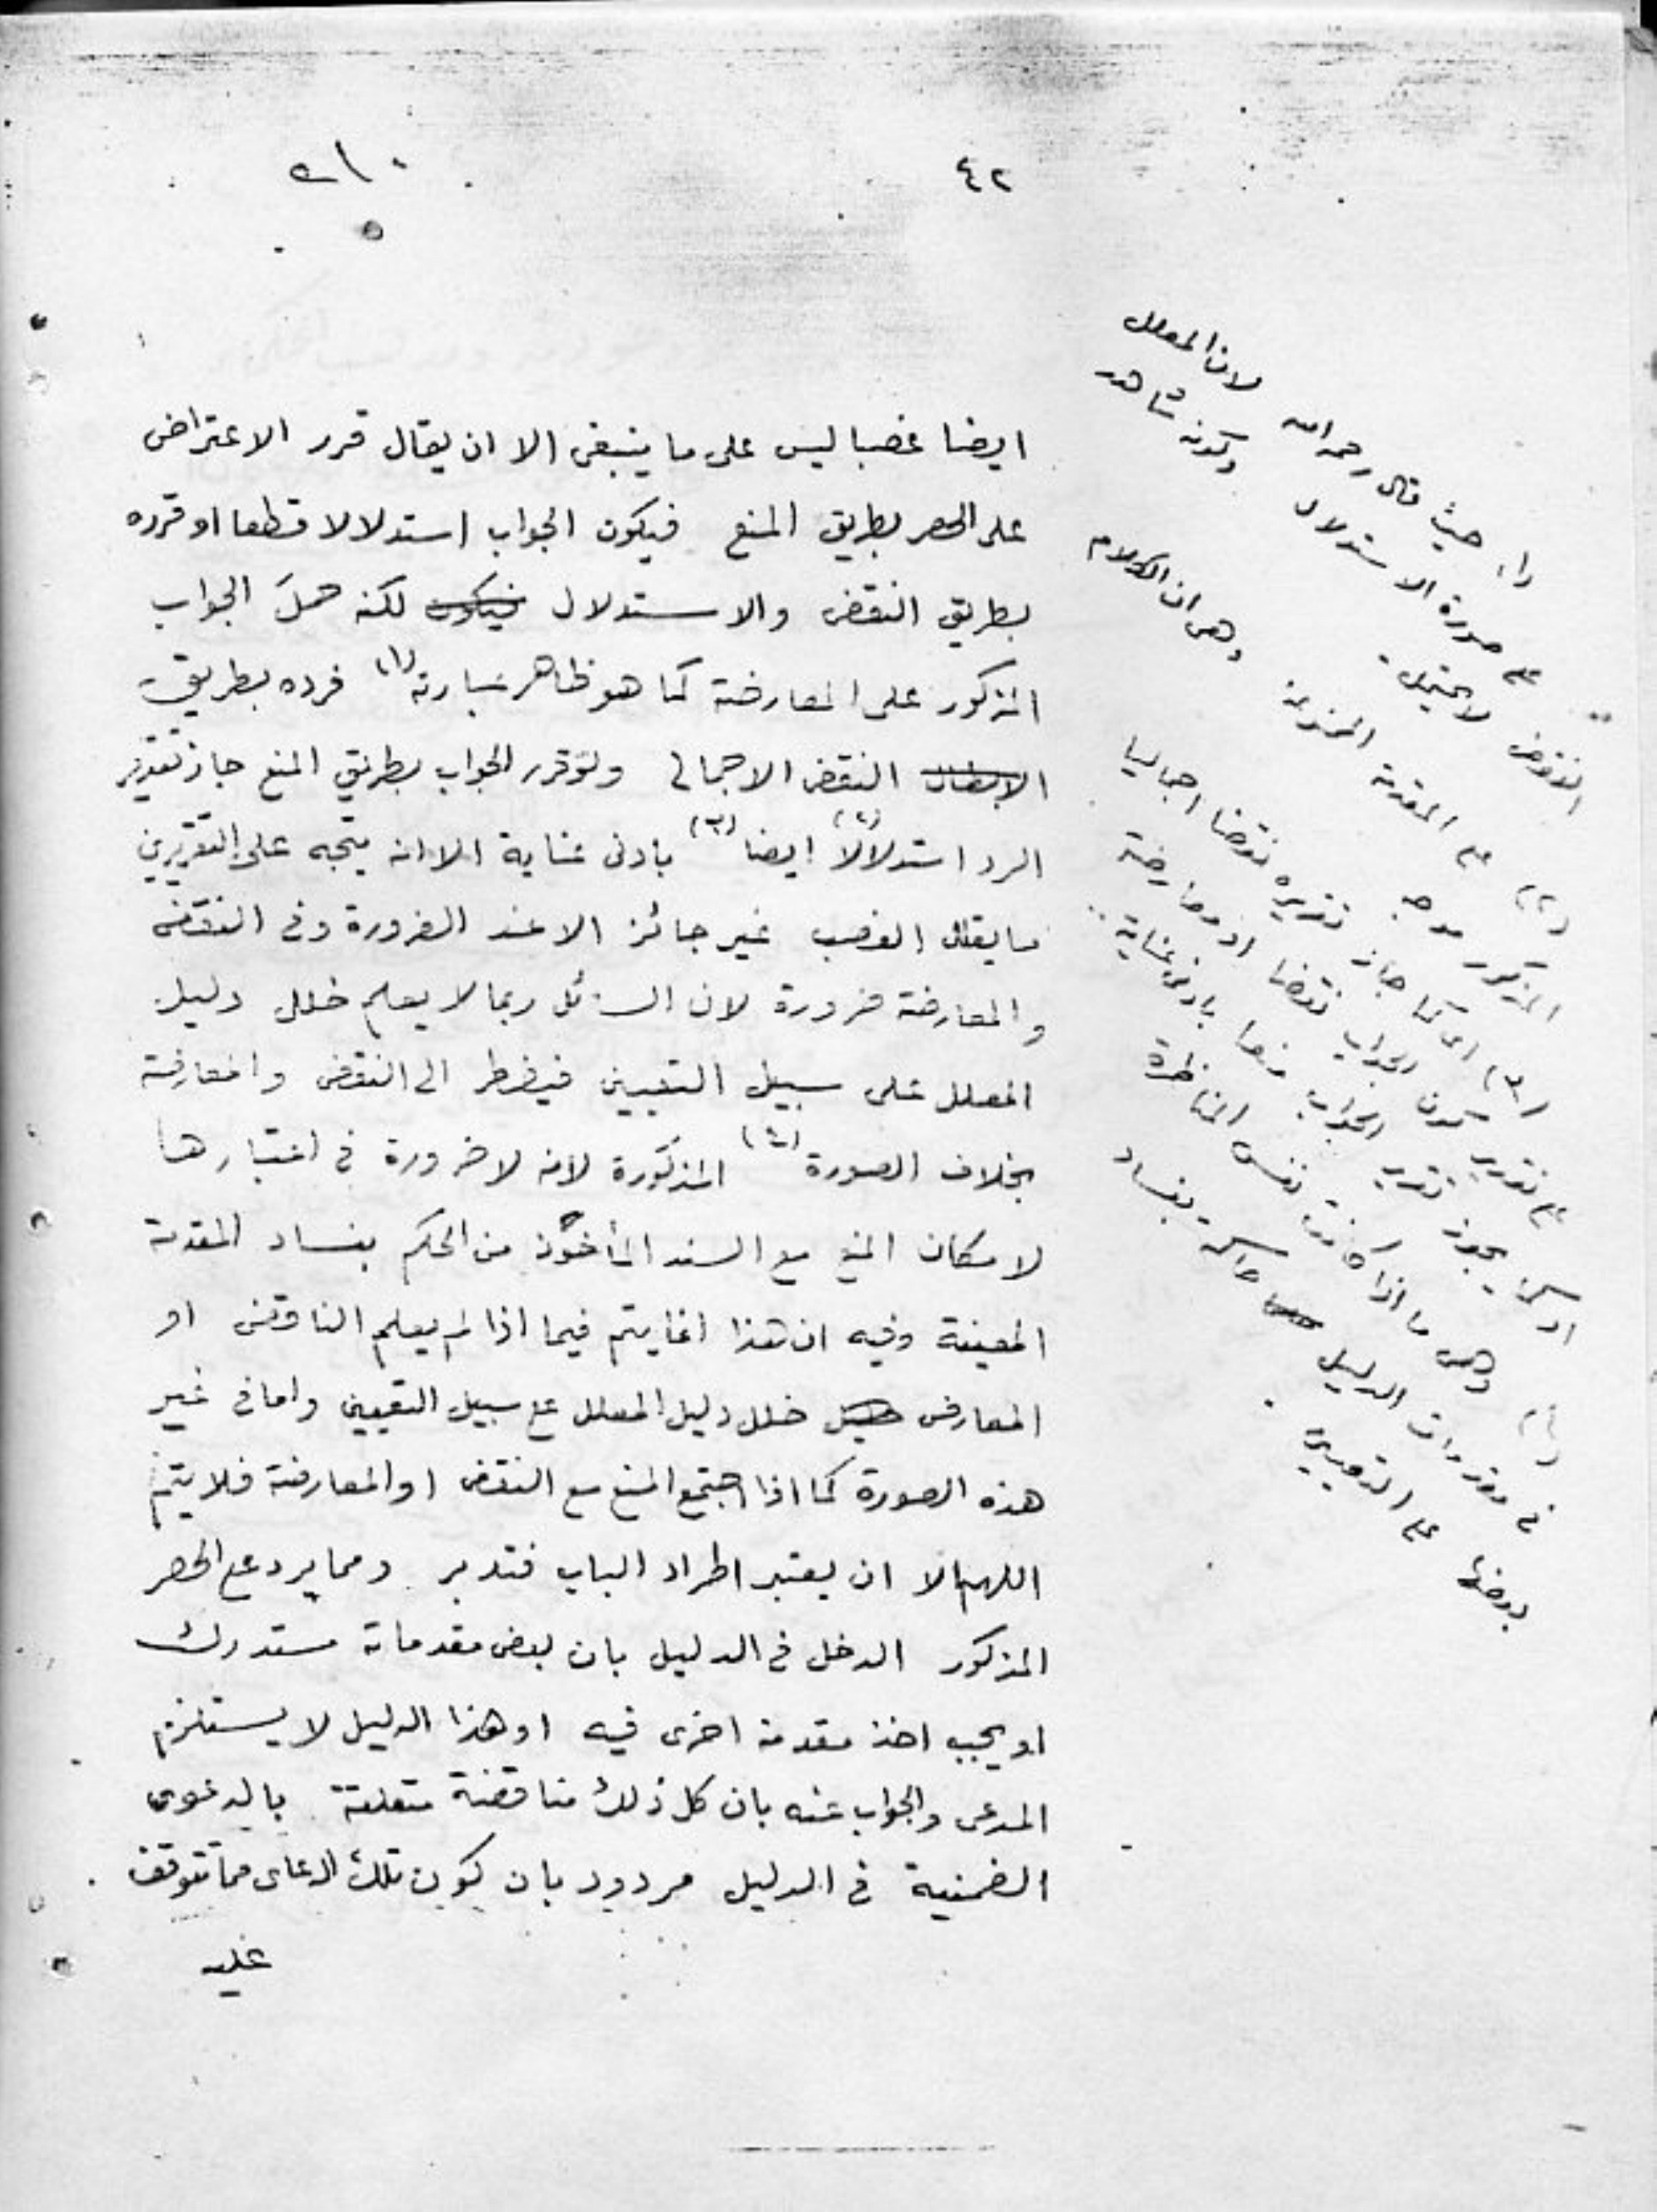 ٤٢
ايضا غصبا ليس على ما ينبغى الا ان يقال قرر الاعتراض
على الحصر بطريق المنع فيكون الجواب استدلالا قطعا او قرره
بطريق النقض والاستدلال فيكون لكنه حمل الجواب
المذكور على المعارضة كما هو ظاهر عبارته (١) فرده بطريق
الابطال النقض الاجمالى ولو قرر الجواب بطريق المنع جاز تقدير
الرد استدلالا (٢) ايضا (٣) بادنى عناية الا انه يتجه على التقريرين
ما يقال الغصب غير جائز الا عند الضرورة وفى النقض
والمعارضة ضرورة لان السائل ربما لا يعلم خلل دليل
المعلل على سبيل التعيين فيضطر الى النقض والمعارضة
بخلاف الصورة (٤) المذكورة لانه لا ضرورة فى اعتبارها
لامكان المنع مع السند المأخوذ من الحكم بفساد المقدمة
المعينة وفيه ان هذا انما يتم فيما اذا لم يعلم الناقض او
المعارض خلل دليل المعلل على سبيل التعيين واما فى غير
هذه الصورة كما اذا اجتمع المنع مع النقض او المعارضة فلا يتم
اللهم الا ان يعتبر اطراد الباب فتدبر ومما يرد على الحصر
المذكور الدخل فى الدليل بان بعض مقدماته مستدرك
او يجب اخذ مقدمة اخرى فيه او هذا الدليل لا يستلزم
المدعى والجواب عنه بان كل ذلك مناقضة متعلقة بالدعوى
الضمنية فى الدليل مردود بان كون تلك الدعاوى مما تتوقف
عليه
(١) حيث قال رحمه الله لان المعلل
صورة الاستدلال وكونه شاهد
النقض
(٢) المقدمة الممنوعة وهى ان الكلام
المذكور موجه
(٣) اى كما جاز تقديره نقضا اجماليا
على تقدير كون الجواب نقضا او معارضة
يجوز تقدير الجواب منعا بادنى عناية
(٤) وهى ما اذا كانت نفس المناظرة
فى مقدمات الدليل حاكمة بفساد
بعضها على التعيين